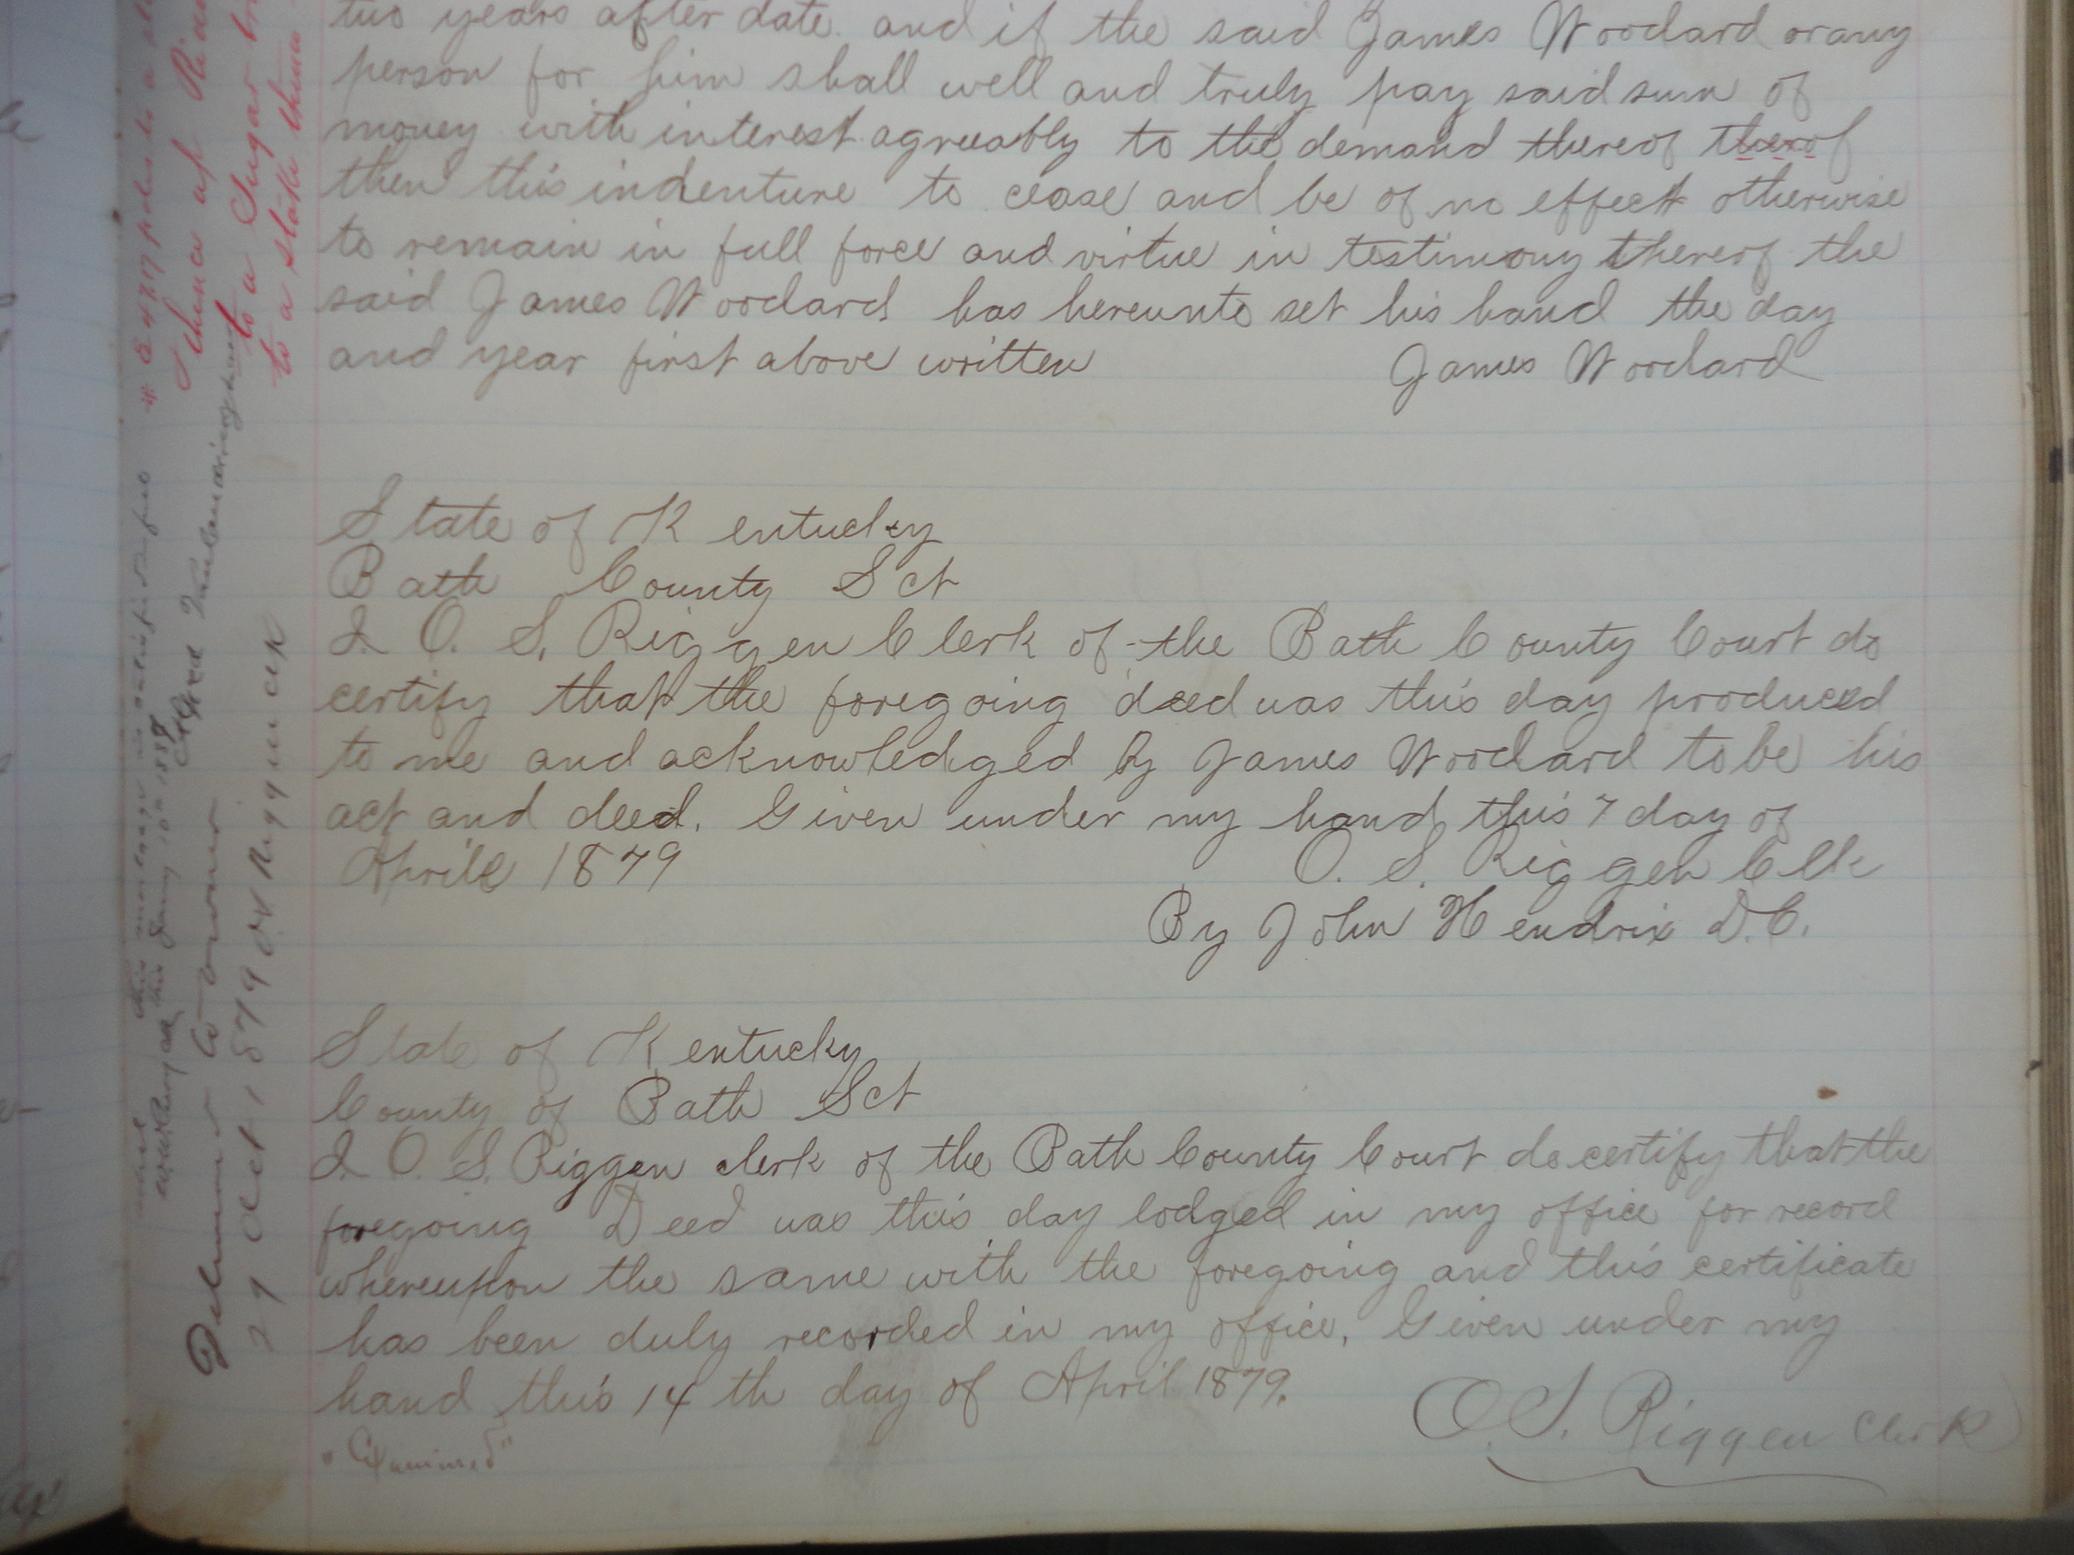 two years after date. and if the said James Woodard or any
person for him shall well and truly pay said sum of
money with interest agreeably to the demand thereof therof
then this indenture to cease and be of no effect otherwise
to remain in full force and virtue in testimony thereof the
said James Woodard has hereunto set his hand the day
and year first above written James Woodard
State of Kentucky
Bath County Sct
I O. S. Riggen Clerk of the Bath County Court do
certify that the foregoing deed was this day produced
to me and acknowledged by James Woodard to be his
act and deed. Given under my hand this 7 day of
Aprile 1879 O. S. Riggen Clk
By John Hendrix D.C.
State of Kentucky
County of Bath Sct
I O. S. Riggen clerk of the Bath County Court do certify that the
foregoing Deed was this day lodged in my office for record
whereupon the same with the foregoing and this certificate
has been duly recorded in my office. Given under my
hand this 14 th day of April 1879.
O. S. Riggen Clerk
"Examined"
poles to a
thence up
to a Sugar
to a stake thence
this mortgage is satisfied
this 10th 1888
to owner
29 Oct 1879